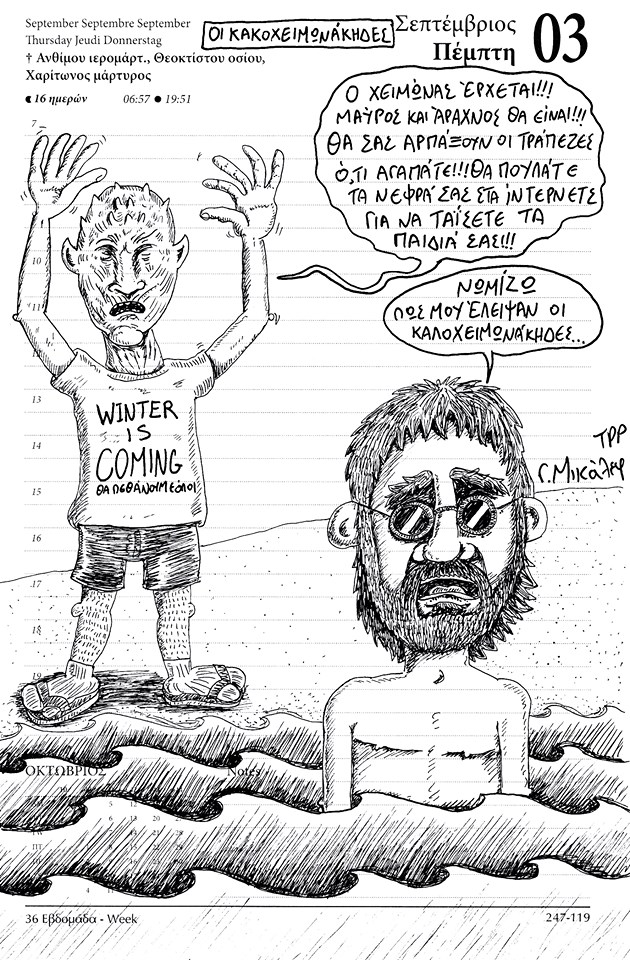 September Septembre September
Thursday Jeudi Donnerstag
† Ανθίμου ιερομάρτ., Θεοκτίστου οσίου,
Χαρίτωνος μάρτυρος
16 ημερών 06:57 ● 19:51
ΟΙ ΚΑΚΟΧΕΙΜΩΝΑΚΗΔΕΣ
Σεπτέμβριος
Πέμπτη
03
Ο ΧΕΙΜΩΝΑΣ ΕΡΧΕΤΑΙ!!!
ΜΑΥΡΟΣ ΚΑΙ ΆΡΑΧΝΟΣ ΘΑ ΕΙΝΑΙ!!!
ΘΑ ΣΑΣ ΑΡΠΑΞΟΥΝ ΟΙ ΤΡΑΠΕΖΕΣ
Ό,ΤΙ ΑΓΑΠΑΤΕ!!! ΘΑ ΠΟΥΛΑΤΕ
ΤΑ ΝΕΦΡΑ ΣΑΣ ΣΤΑ ΙΝΤΕΡΝΕΤΣ
ΓΙΑ ΝΑ ΤΑΪΣΕΤΕ ΤΑ
ΠΑΙΔΙΑ ΣΑΣ!!!
ΝΟΜΙΖΩ
ΠΩΣ ΜΟΥ ΈΛΕΙΨΑΝ ΟΙ
ΚΑΛΟΧΕΙΜΩΝΑΚΗΔΕΣ...
7
10
11
12
13
14
15
16
17
18
19
WINTER
IS
COMING
ΘΑ ΠΕΘΑΝΟΥΜΕ ΌΛΟΙ
ΤΡΡ
Γ. Μικάλεφ
ΟΚΤΩΒΡΙΟΣ
Notes
36 Εβδομάδα - Week
247-119